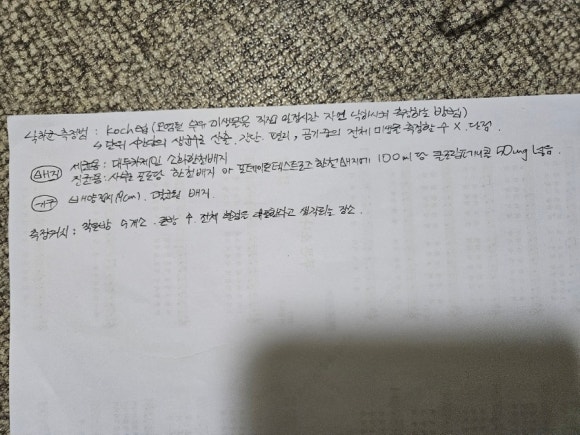 낙하균 측정법 : Koch법 (오염된 부유 미생물을 직접 일정시간 자연 낙하시켜 측정하는 방법)
↳ 단위 생균수로 산출. 간단. 편리, 공기중의 전체 미생물 측정할 수 X. 단점.
배지 세균용 : 대두카제인 소화한천배지
진균용 : 사부로 포도당 한천배지 or 포테이토덱스트로즈 한천배지에 100ml당 클로람페니콜 50mg 넣음.
기구 배양접시(9cm). 멸균된 배지
측정위치 : 작은방 5개소. 큰방 수 전체 환경을 대표한다고 생각되는 장소.